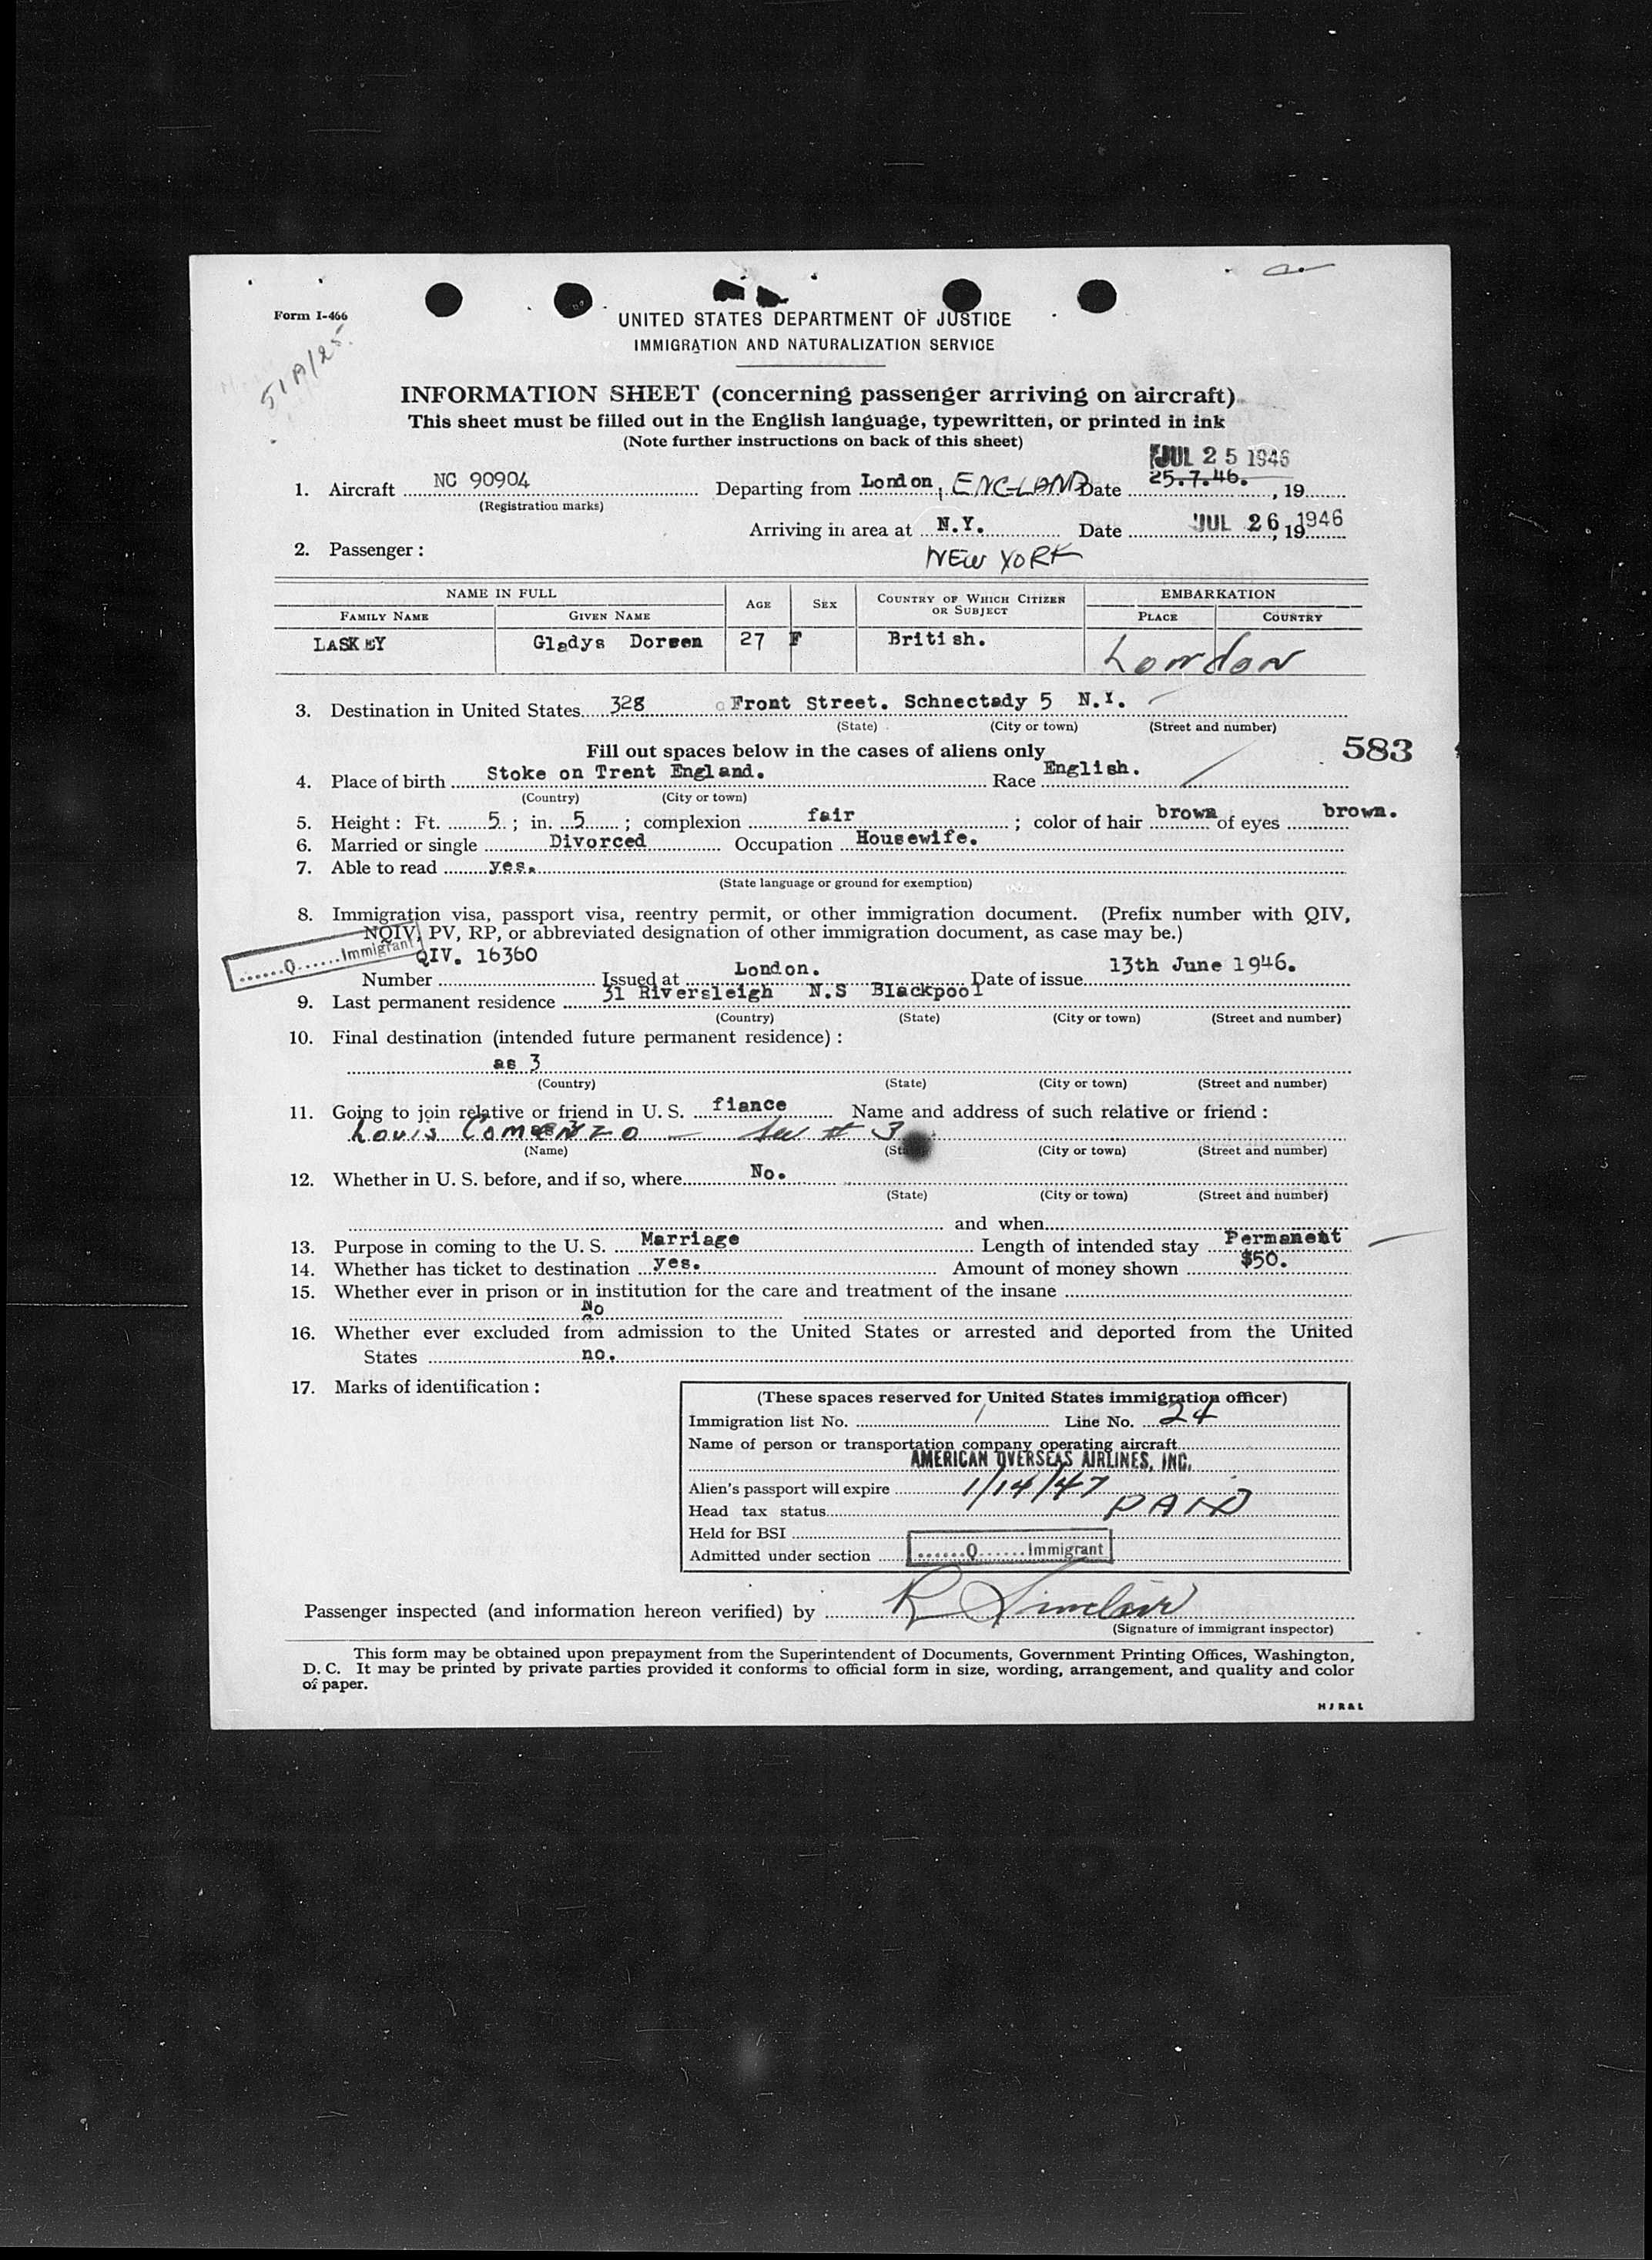 Form I-466
51A/25.
UNITED STATES DEPARTMENT OF JUSTICE
IMMIGRATION AND NATURALIZATION SERVICE
INFORMATION SHEET (concerning passenger arriving on aircraft)
This sheet must be filled out in the English language, typewritten, or printed in ink
(Note further instructions on back of this sheet)
JUL 25 1946
1. Aircraft NC 90904 Departing from London, ENGLAND Date 25.7.46. , 19
(Registration marks)
Arriving in area at N.Y. Date JUL 26, 19 1946
2. Passenger : NEW YORK
NAME IN FULL AGE SEX COUNTRY OF WHICH CITIZEN OR SUBJECT EMBARKATION
FAMILY NAME GIVEN NAME PLACE COUNTRY
LASKEY Gladys Doreen 27 F British. London
3. Destination in United States 328 Front Street. Schnectady 5 N.Y.
(State) (City or town) (Street and number)
Fill out spaces below in the cases of aliens only
583
4. Place of birth Stoke on Trent England. Race English.
(Country) (City or town)
5. Height : Ft. 5 ; in. 5 ; complexion fair ; color of hair brown of eyes brown.
6. Married or single Divorced Occupation Housewife.
7. Able to read yes.
(State language or ground for exemption)
8. Immigration visa, passport visa, reentry permit, or other immigration document. (Prefix number with QIV,
NQIV, PV, RP, or abbreviated designation of other immigration document, as case may be.)
......Q......Immigrant
Number QIV. 16360 Issued at London. Date of issue 13th June 1946.
9. Last permanent residence 31 Riversleigh N.S Blackpool
(Country) (State) (City or town) (Street and number)
10. Final destination (intended future permanent residence) :
as 3
(Country) (State) (City or town) (Street and number)
11. Going to join relative or friend in U. S. fiance Name and address of such relative or friend :
Louis Comenzo - See # 3
(Name) (State) (City or town) (Street and number)
12. Whether in U. S. before, and if so, where No.
(State) (City or town) (Street and number)
and when
13. Purpose in coming to the U. S. Marriage Length of intended stay Permanent
14. Whether has ticket to destination yes. Amount of money shown $50.
15. Whether ever in prison or in institution for the care and treatment of the insane
No
16. Whether ever excluded from admission to the United States or arrested and deported from the United
States no.
17. Marks of identification :
(These spaces reserved for United States immigration officer)
Immigration list No. 1 Line No. 24
Name of person or transportation company operating aircraft
AMERICAN OVERSEAS AIRLINES, INC.
Alien's passport will expire 1/14/47
Head tax status PAID
Held for BSI
Admitted under section ......Q......Immigrant
Passenger inspected (and information hereon verified) by R Sinclair
(Signature of immigrant inspector)
This form may be obtained upon prepayment from the Superintendent of Documents, Government Printing Offices, Washington,
D. C. It may be printed by private parties provided it conforms to official form in size, wording, arrangement, and quality and color
of paper.
HJR&L